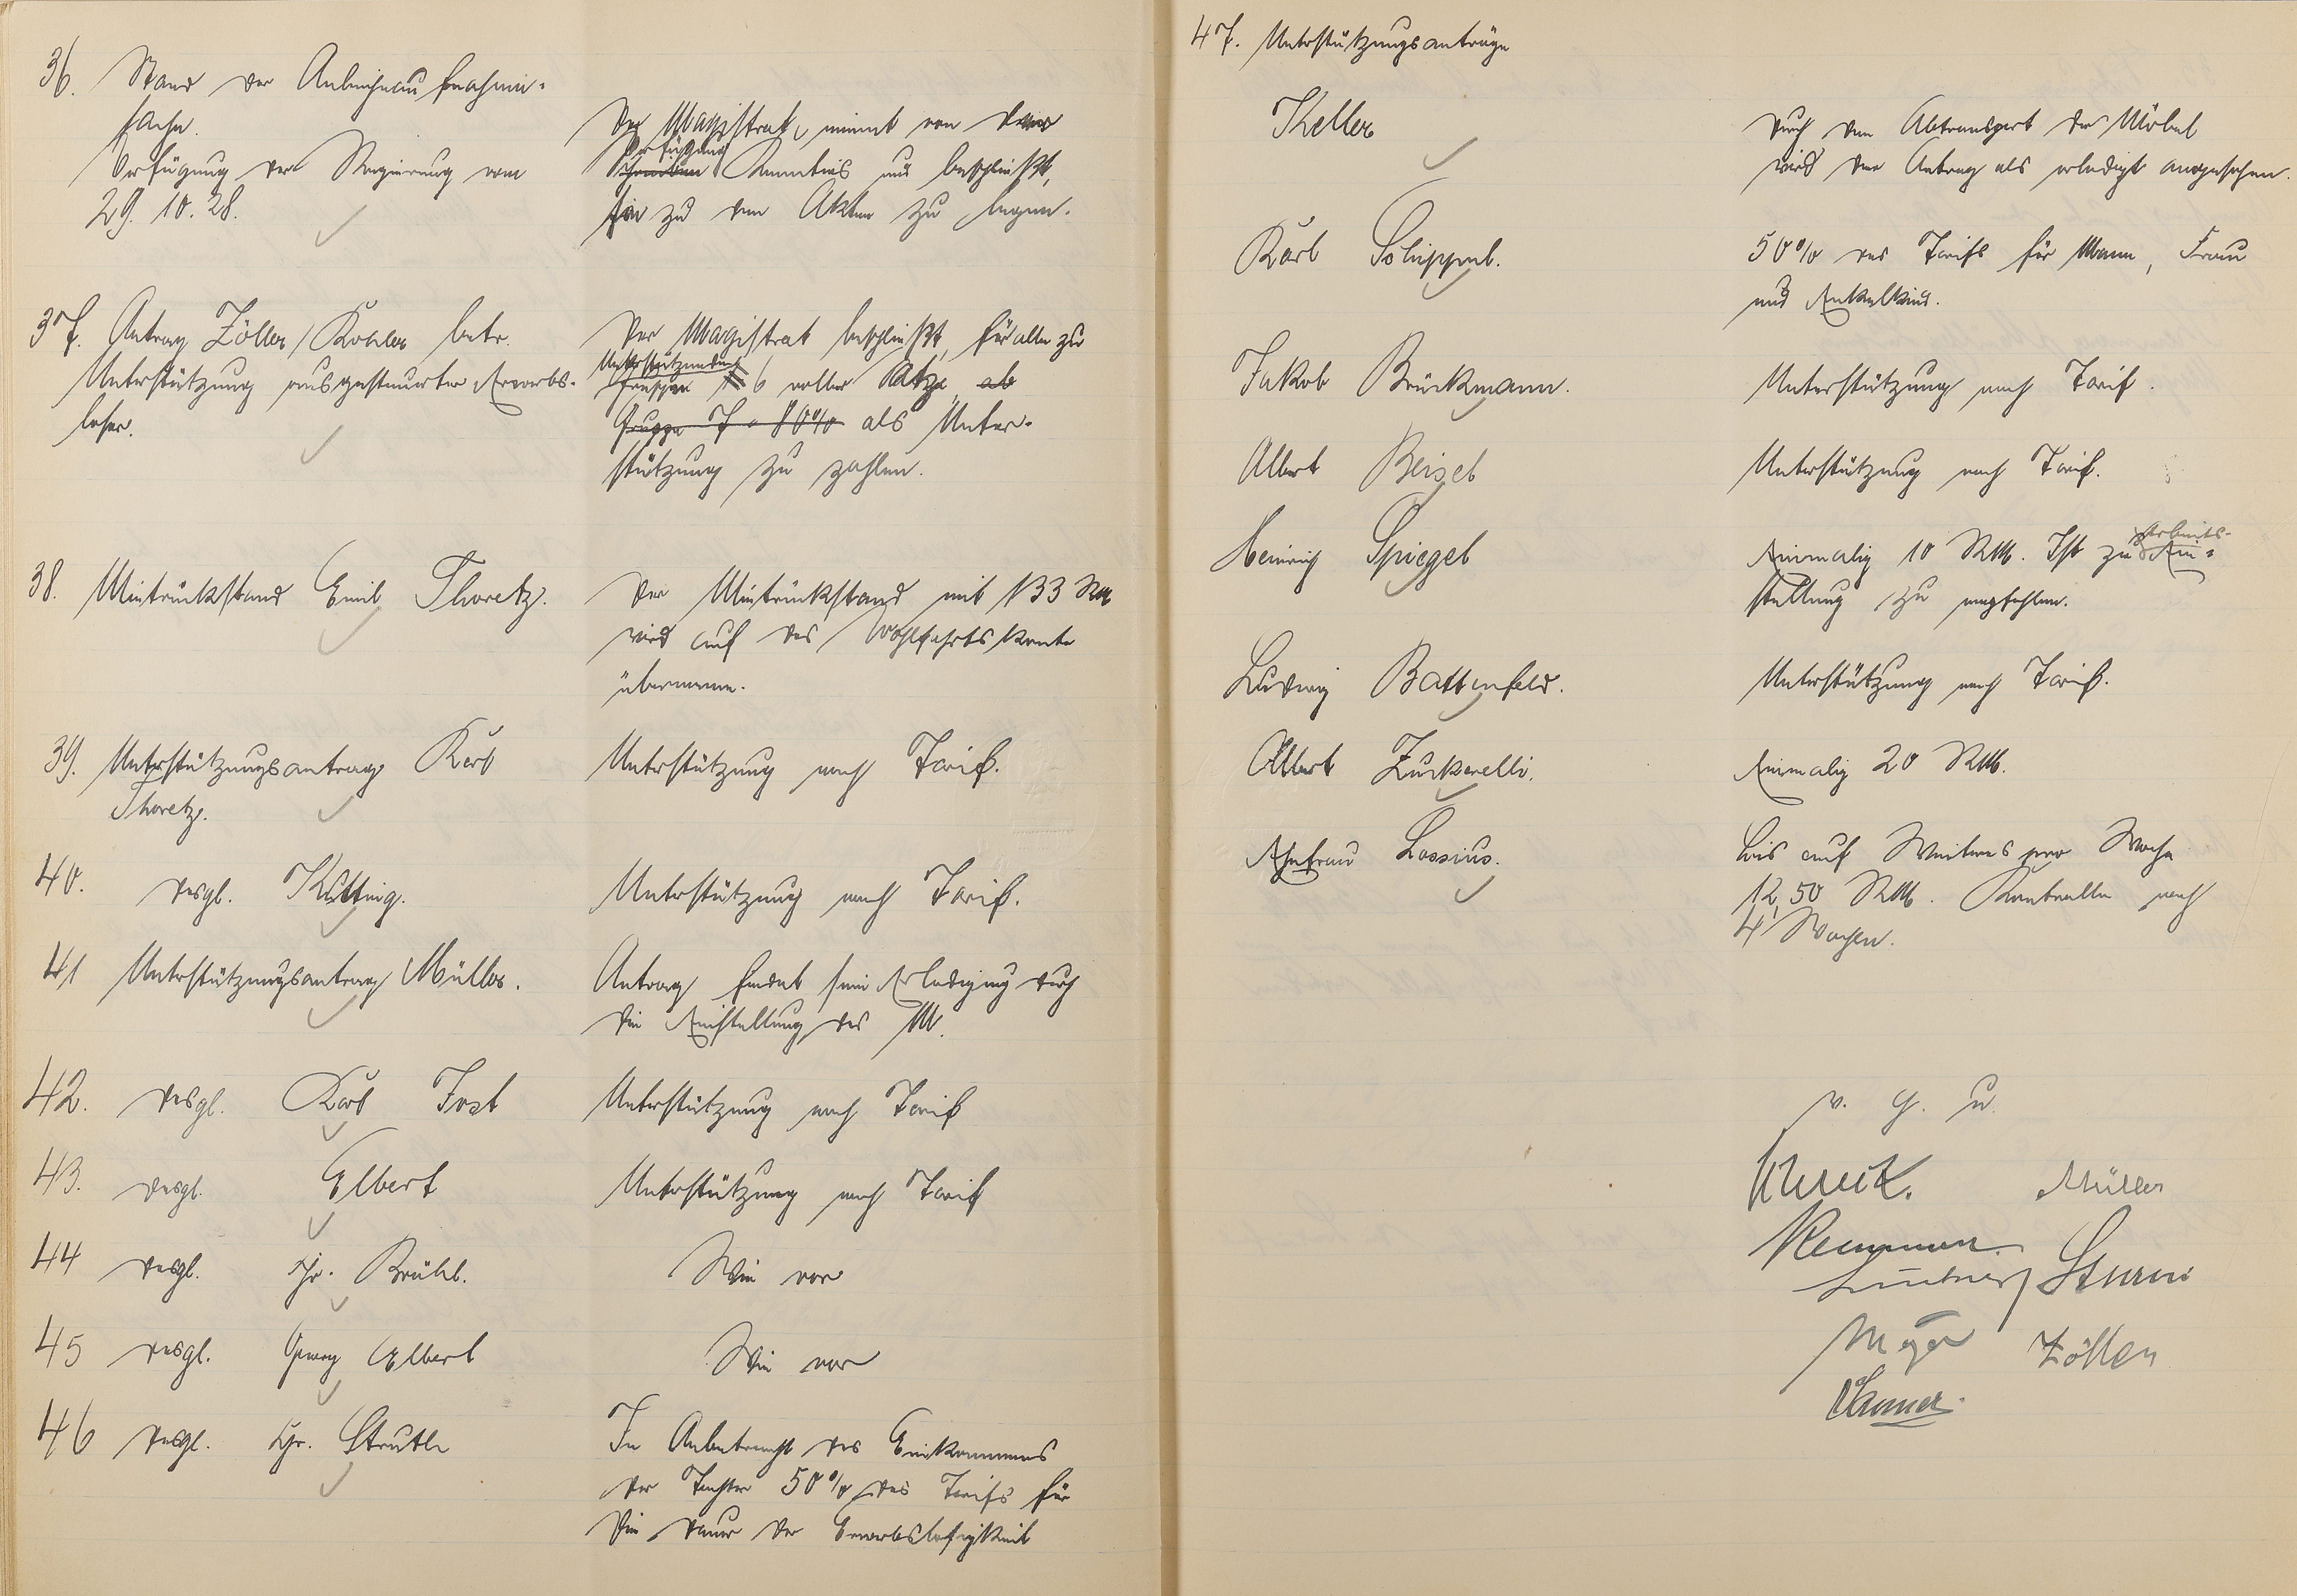 36. Stand der Anleiheaufnahme-
sache.
Verfügung der Regierung vom
29. 10. 28.
Der Magistrat nimmt von der
Verfügung Kenntnis und beschließt,
sie zu den Akten zu legen.
37. Antrag Zöller/Kohler betr.
Unterstützung ausgesteuerter Erwerbs-
loser.
Der Magistrat beschließt, für alle zu
Unterstützenden
Gruppe 6 voller Sätze, ab
Gruppe 7 - 80% als Unter-
stützung zu zahlen.
38. Mietrückstand Emil Thoretz.
Der Mietrückstand mit 133 RM
wird auf das Wohlfahrtskonto
übernommen.
39. Unterstützungsantrag Karl
Thoretz.
Unterstützung nach Tarif.
40. desgl. Küttnig.
Unterstützung nach Tarif.
41 Unterstützungsantrag Müller.
Antrag findet seine Erledigung durch
die Einstellung des M.
42. desgl. Karl Jost
Unterstützung nach Tarif
43. desgl. Elbert
Unterstützung nach Tarif
44 desgl. Chr. Brühl.
Wie vor
45 desgl. Georg Elbert
Wie vor
46 desgl. Chr. Struth
In Anbetracht des Einkommens
der Tochter 50% des Tarifs für
die Dauer der Erwerbslosigkeit
47. Unterstützungsanträge
Keller
durch den Abtransport der Möbel
wird der Antrag als erledigt angesehen.
Karl Schippert.
50% des Tarifs für Mann, Frau
und Enkelkind.
Jakob Brückmann.
Unterstützung nach Tarif.
Albert Beisel
Unterstützung nach Tarif.
Heinrich Spiegel
Arbeits-
Einmalig 10 RM. Ist zur Ein-
stellung zu empfehlen.
Ludwig Battenfeld.
Unterstützung nach Tarif.
Albert Zuckarelli.
Einmalig 20 RM.
Ehefrau Lossius.
bis auf Weiteres pro Woche
12,50 RM. Kontrolle nach
4 Wochen.
v. g. u.
Müller
Sturm
Meyer Zöller